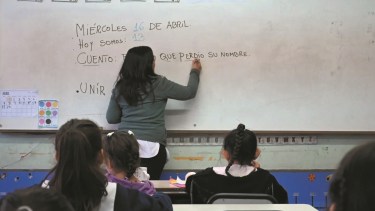 MIÉRCOLES 16 DE ABRIL
HOY SOMOS: 13
CUENTO: QUE PERDIO SU NOMBRE.
.UNIR